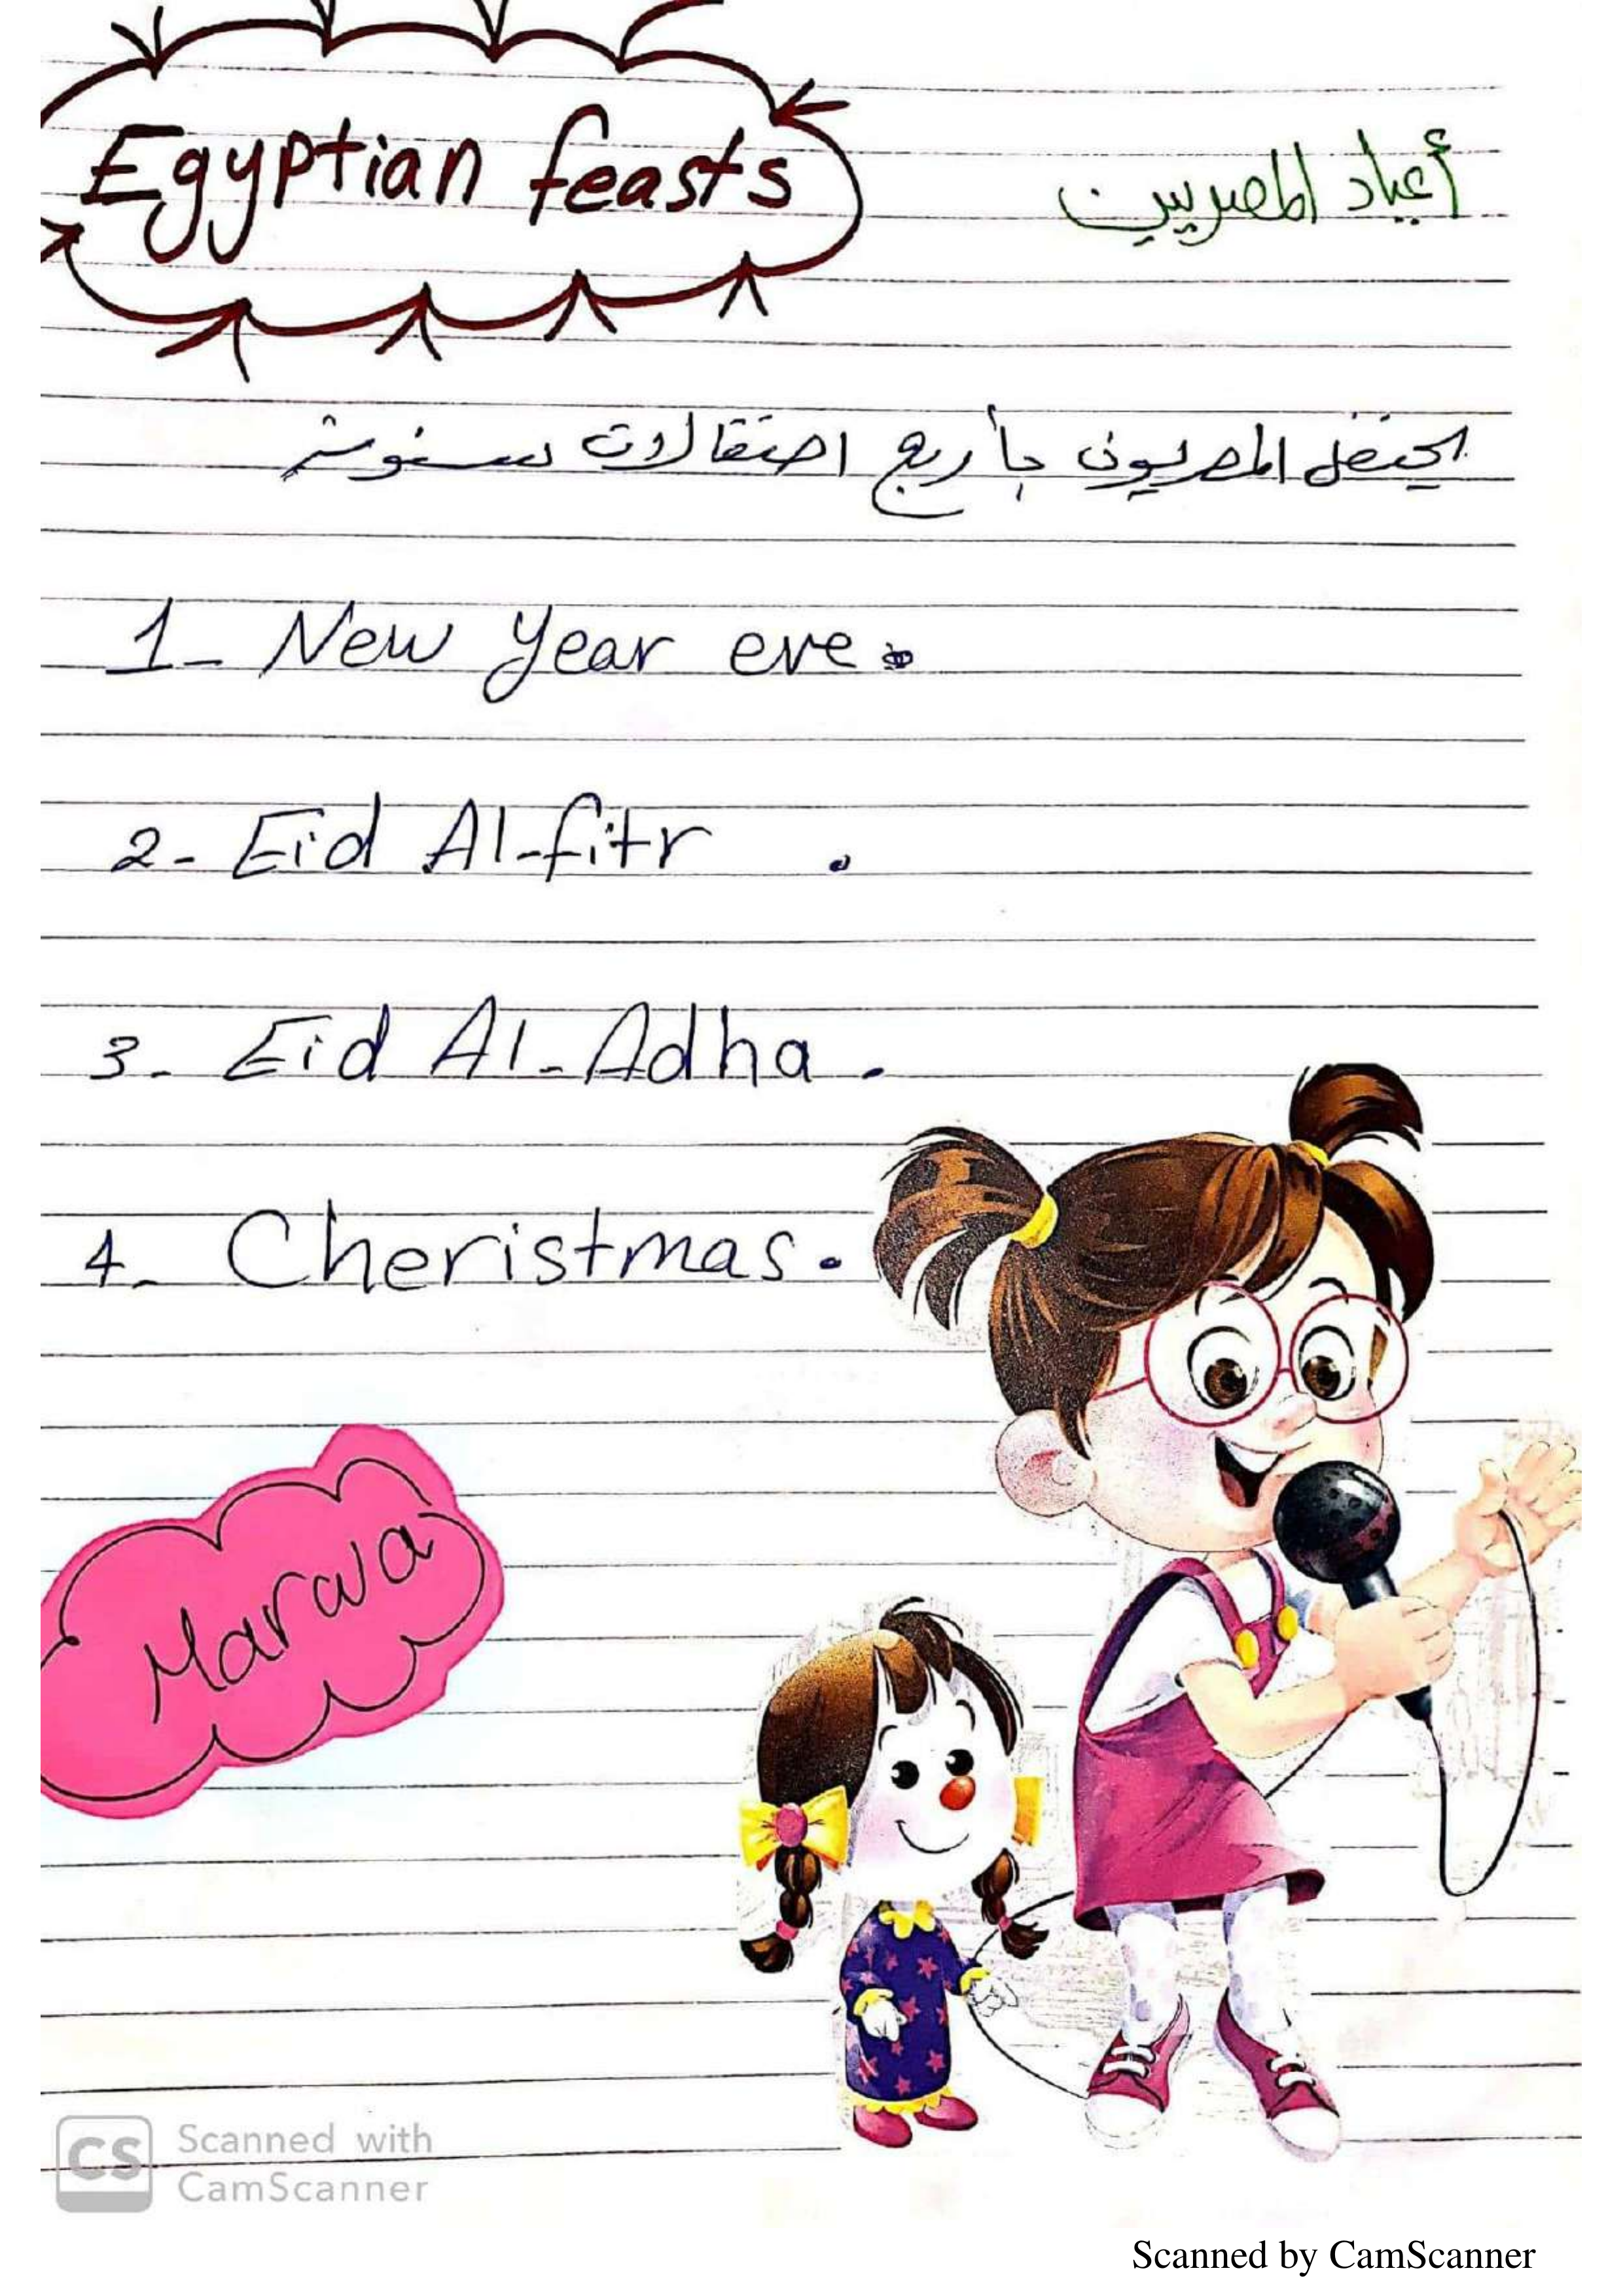 Egyptian feasts
أعياد المصريين
يحتفل المصريون بأربع احتفالات سنوية
1- New year eve.
2- Eid Al-fitr .
3- Eid Al-Adha.
4- Cheristmas.
Marwa
CS Scanned with
CamScanner
Scanned by CamScanner